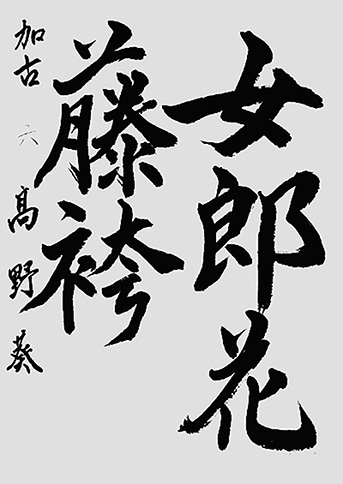 女郎花
藤袴
加古 六 髙野葵